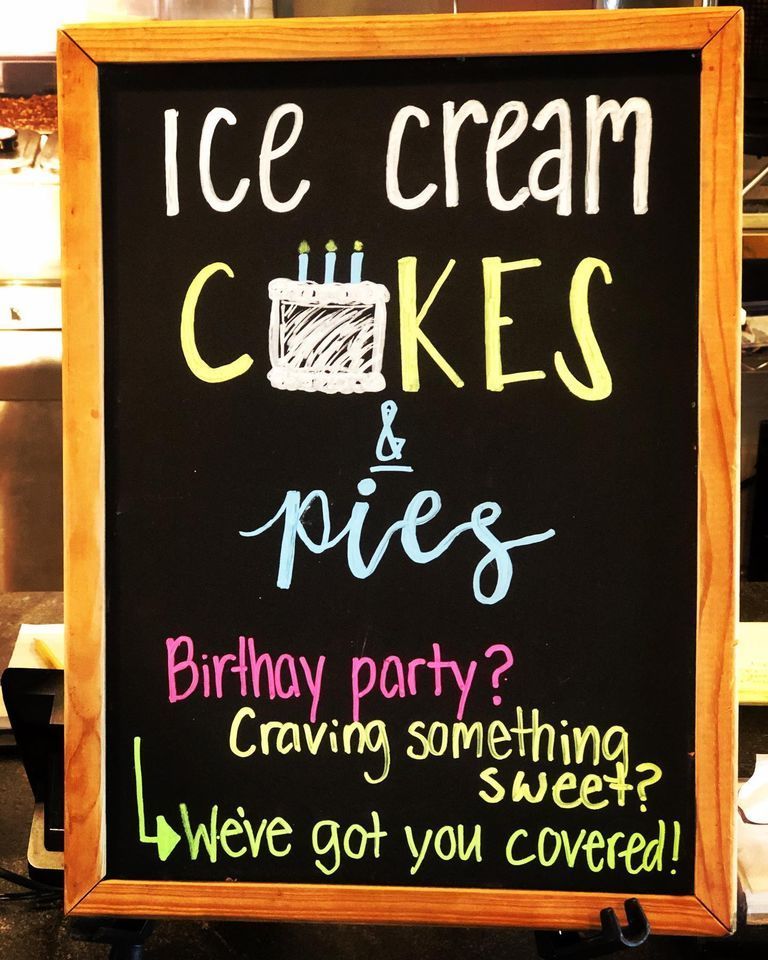 Ice cream
CAKES
&
pies
Birthay party?
Craving something
sweet?
We've got you covered!